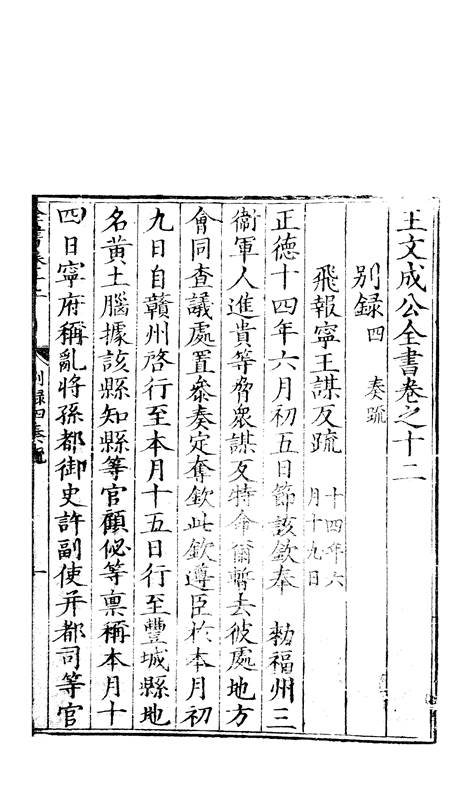 王文成公全書卷之十二
别録四 奏疏
飛報寧王謀反疏 十四年六月十九日
正徳十四年六月初五日節該欽奉 勑福州三
衞軍人進貴等脅衆謀反特命爾暫去彼處地方
會同查議處置叅奏定奪欽此欽遵臣於本月初
九日自贛州啓行至本月十五日行至豐城縣地
名黄土腦據該縣知縣等官顧佖等禀稱本月十
四日寧府稱亂將孫都御史許副使并都司等官
全書卷十二 别録四奏疏 一